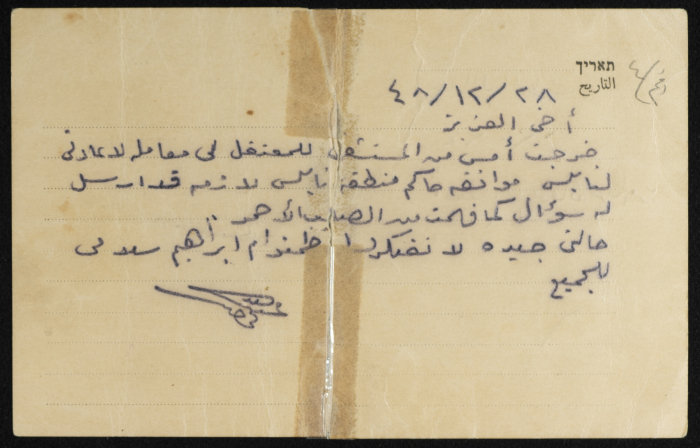 תאריך
التاريخ
٤٨/١٢/٢٨
أخي العزيز
خرجت أمس من المستشفى للمعتقل لي معامله لاعادتي
لنابلس موافقه حاكم منطقة نابلس لازمه قد ارسل
له سؤال كما فهمت من الصليب الأحمر
حالتي جيده لا تفتكروا ابراهيم سلامي
للجميع